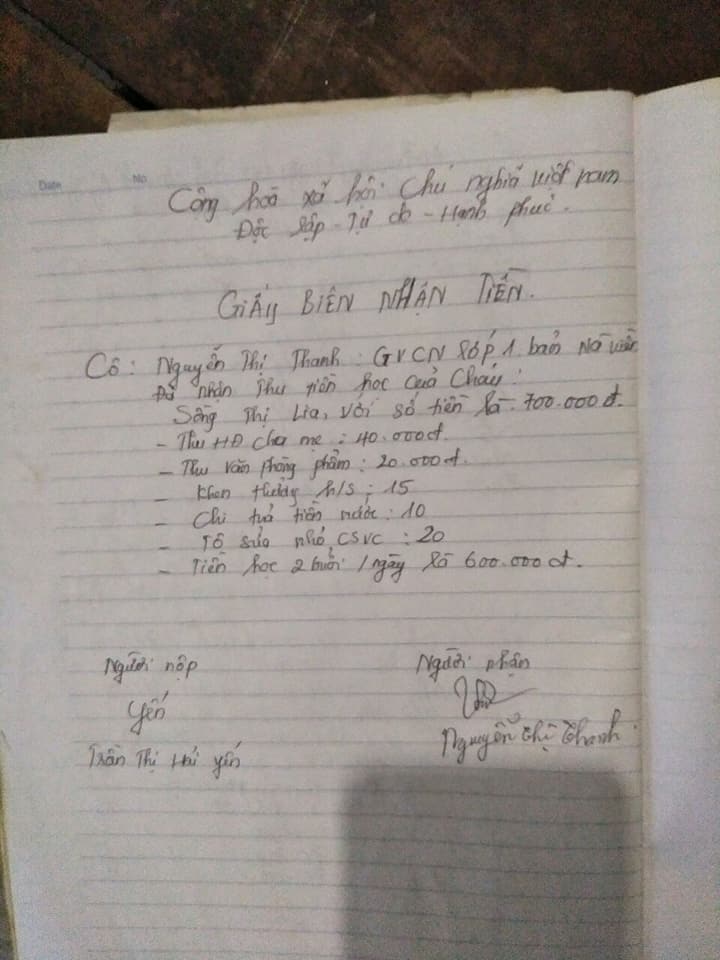 Date No
Cộng hoà xã hội Chủ nghĩa việt nam
Độc lập - Tự do - Hạnh phúc.
GIẤY BIÊN NHẬN TIỀN.
Cô: Nguyễn Thị Thanh: GVCN lớp 1 bản Nà
Đã nhận Thu tiền học của Cháu:
Sông Thị Lia, với số tiền là: 700.000đ.
- Thu HĐ cha mẹ: 40.000đ.
- Thu văn phòng phẩm: 20.000đ.
- Khen thưởng h/s: 15
- Chi trả tiền nước: 10
- Tô sửa nhỏ CSVC: 20
- Tiền học 2 buổi/ngày là 600.000đ.
Người nộp Người nhận
Yến
Nguyễn Thị Thanh
Trần Thị Hải yến